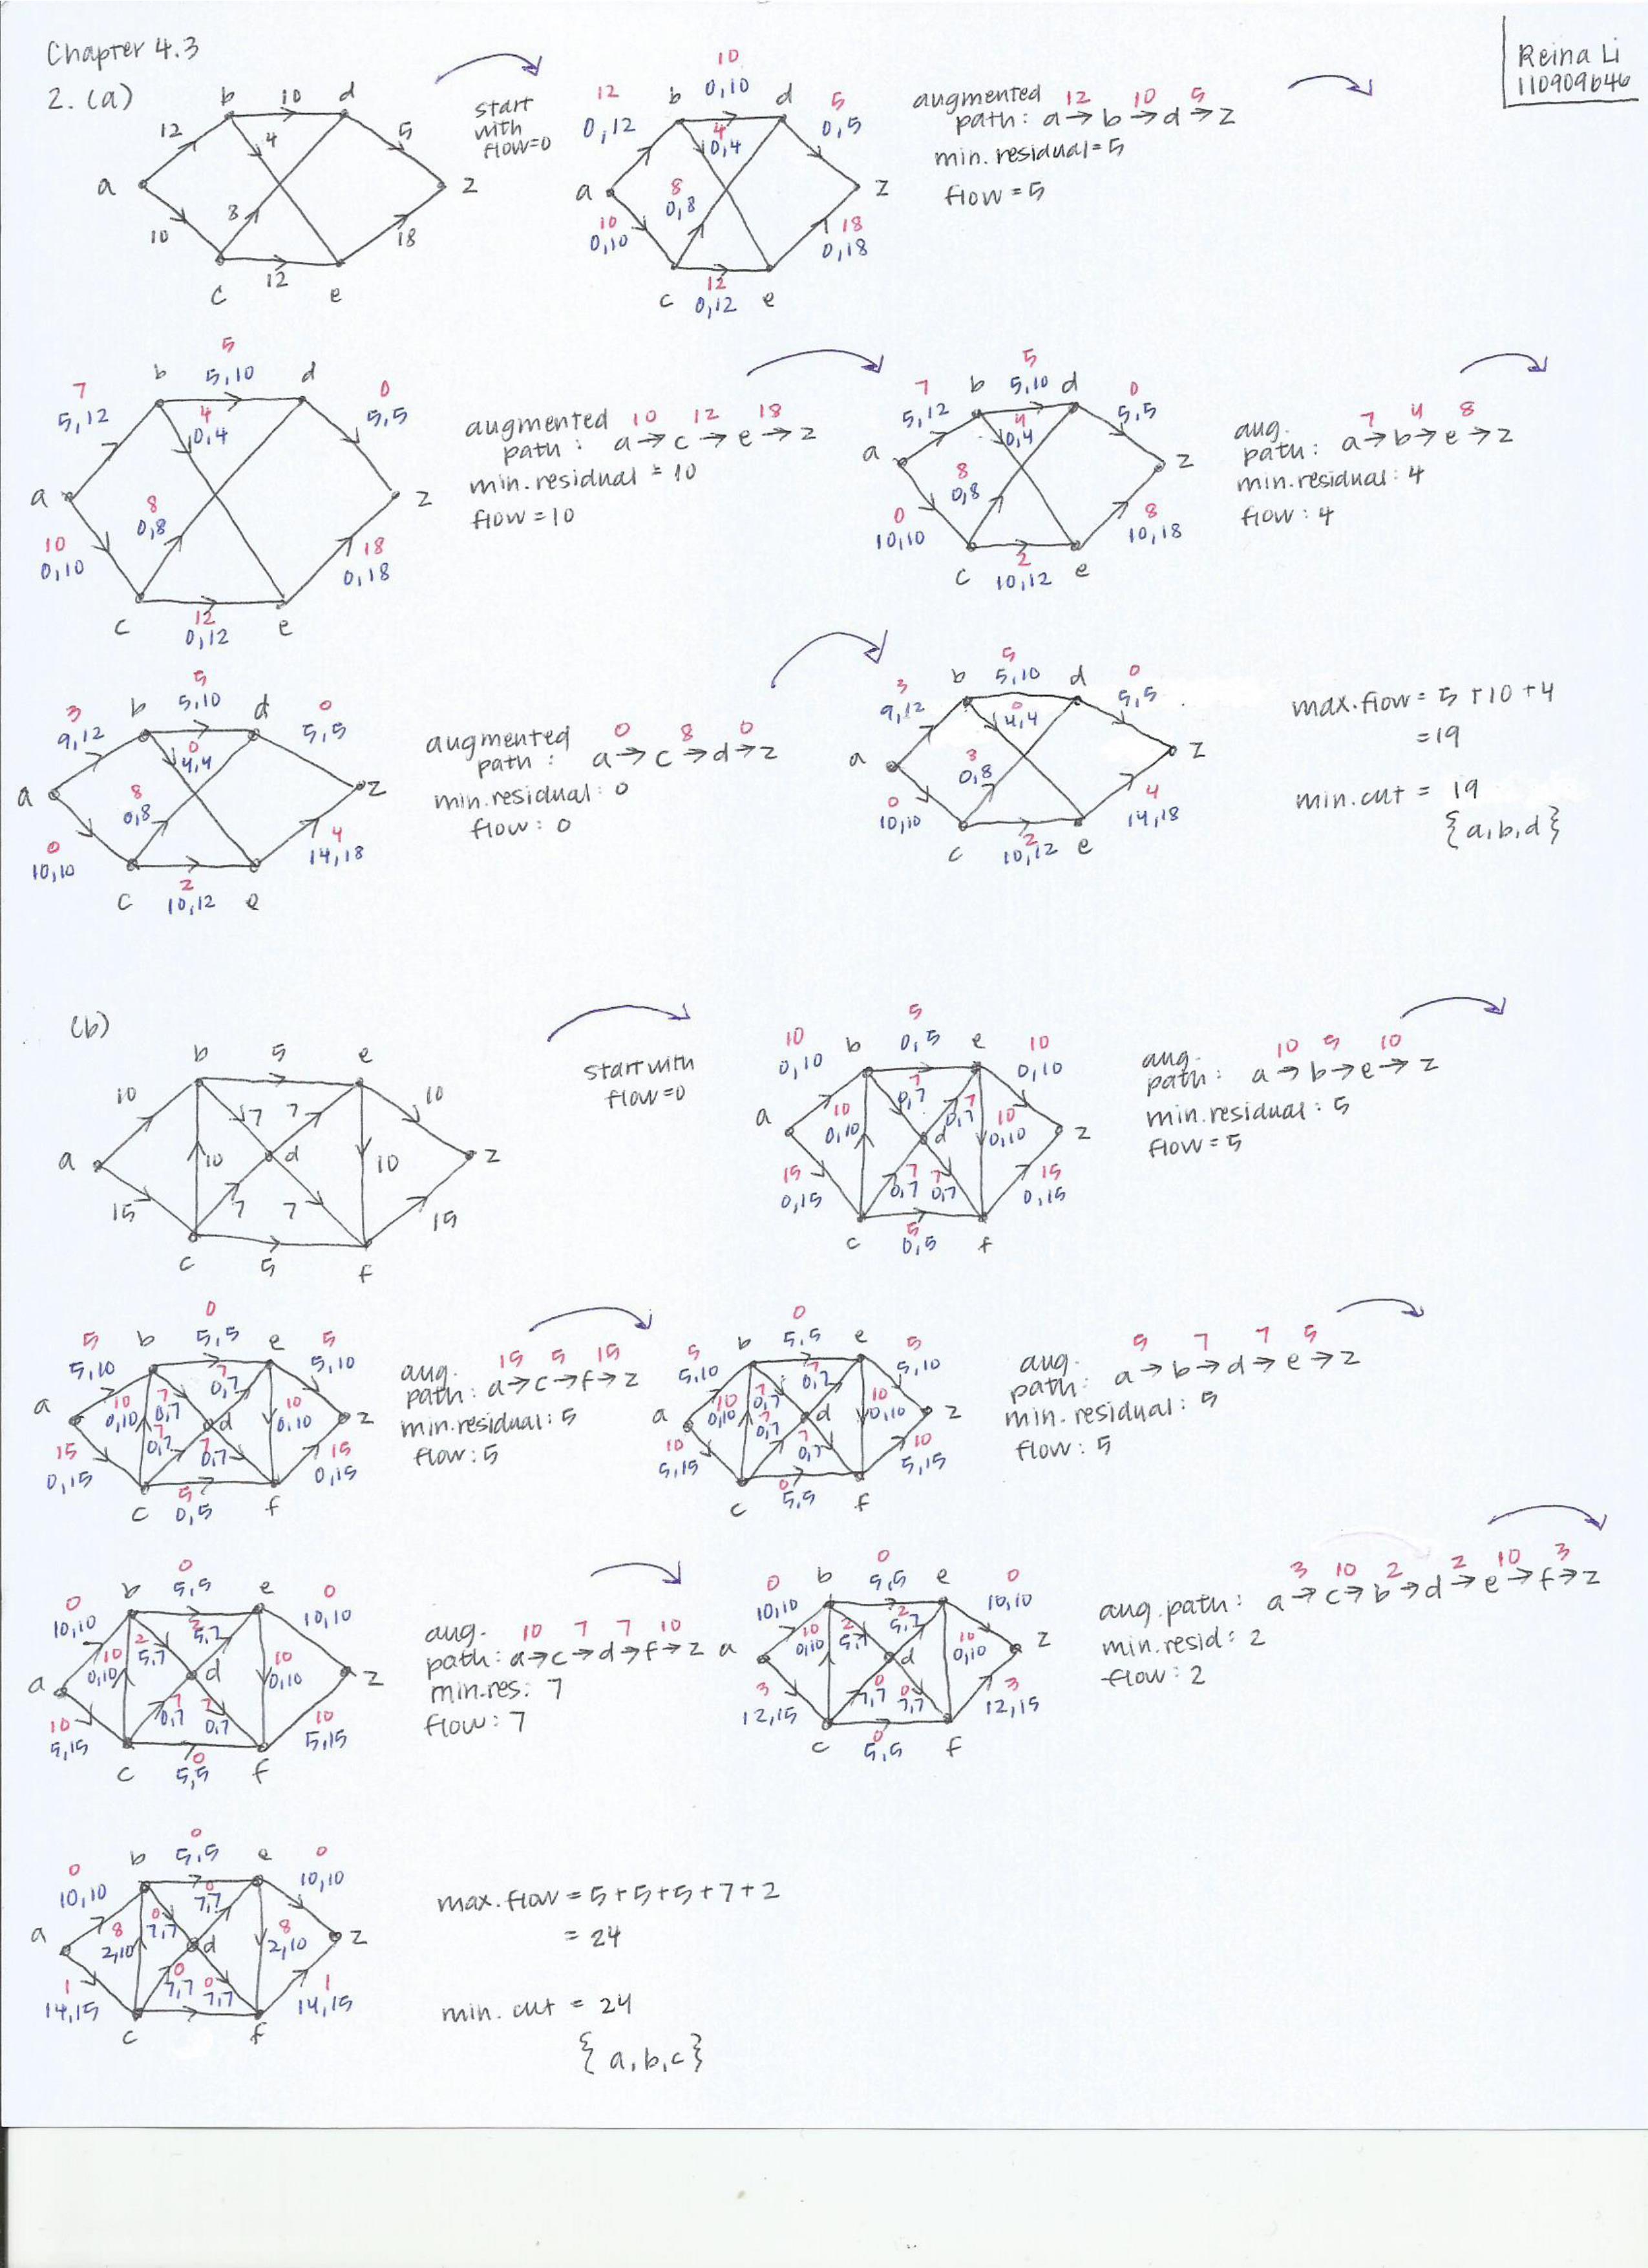 Chapter 4.3
Reina Li
110909646
2. (a)
b 10 d
12 4 5
a z
8
10 18
12
c e
start
with
flow=0
10
12 b 0,10 d 5
0,12 4 0,5
0,4
a 8 z
0,8
10 18
0,10 0,18
12
c 0,12 e
augmented 12 10 5
path: a→b→d→z
min. residual=5
flow=5
5
7 b 5,10 d 0
5,12 4 5,5
0,4
a 8 z
0,8
10 18
0,10 0,18
12
c 0,12 e
augmented 10 12 18
path: a→c→e→z
min.residual = 10
flow=10
5
7 b 5,10 d 0
5,12 4 5,5
0,4
a 8 z
0,8
0 8
10,10 10,18
2
c 10,12 e
aug. 7 4 8
path: a→b→e→z
min.residual: 4
flow: 4
5
3 b 5,10 d 0
9,12 0 5,5
4,4
a 8 z
0,8
0 4
10,10 14,18
2
c 10,12 e
augmented 0 8 0
path: a→c→d→z
min.residual: 0
flow: 0
5
3 b 5,10 d 0
9,12 0 5,5
4,4
a 8 z
0,8
0 4
10,10 14,18
2
c 10,12 e
max.flow = 5+10+4
=19
min.cut = 19
{a,b,d}
(b)
b 5 e
10 7 7 10
a 10 d 10 z
15 7 7 15
c 5 f
start with
flow=0
5
10 b 0,5 e 10
0,10 7 7 0,10
0,7 0,7
a 10 d 10 z
0,10 0,10
15 7 7 15
0,15 0,7 0,7 0,15
5
c 0,5 f
aug. 10 5 10
path: a→b→e→z
min.residual: 5
flow=5
0
5 b 5,5 e 5
5,10 7 5,10
0,7
a 10 7 10 z
0,10 0,7 d 0,10
15 7 7 15
0,15 0,7 0,7 0,15
5
c 0,5 f
aug. 15 5 15
path: a→c→f→z
min.residual: 5
flow: 5
0
5 b 5,5 e 5
5,10 7 5,10
0,7
a 10 7 10 z
0,10 0,7 d 0,10
10 7 7 10
5,15 0,7 0,7 5,15
0
c 5,5 f
aug. 5 7 7 5
path: a→b→d→e→z
min. residual: 5
flow: 5
0
0 b 5,5 e 0
10,10 2 10,10
5,7
a 10 2 10 z
0,10 5,7 d 0,10
10 7 7 10
5,15 0,7 0,7 5,15
0
c 5,5 f
aug. 10 7 7 10
path: a→c→d→f→z
min.res: 7
flow: 7
0
0 b 5,5 e 0
10,10 2 10,10
5,7
a 10 2 10 z
0,10 5,7 d 0,10
3 0 0 3
12,15 7,7 7,7 12,15
0
c 5,5 f
aug.path: 3 10 2 2 10 3
a→c→b→d→e→f→z
min.resid: 2
flow: 2
0
0 b 5,5 e 0
10,10 0 10,10
7,7
a 8 0 8 z
2,10 7,7 d 2,10
1 0 0 1
14,15 7,7 7,7 14,15
c f
max.flow = 5+5+5+7+2
= 24
min. cut = 24
{a,b,c}